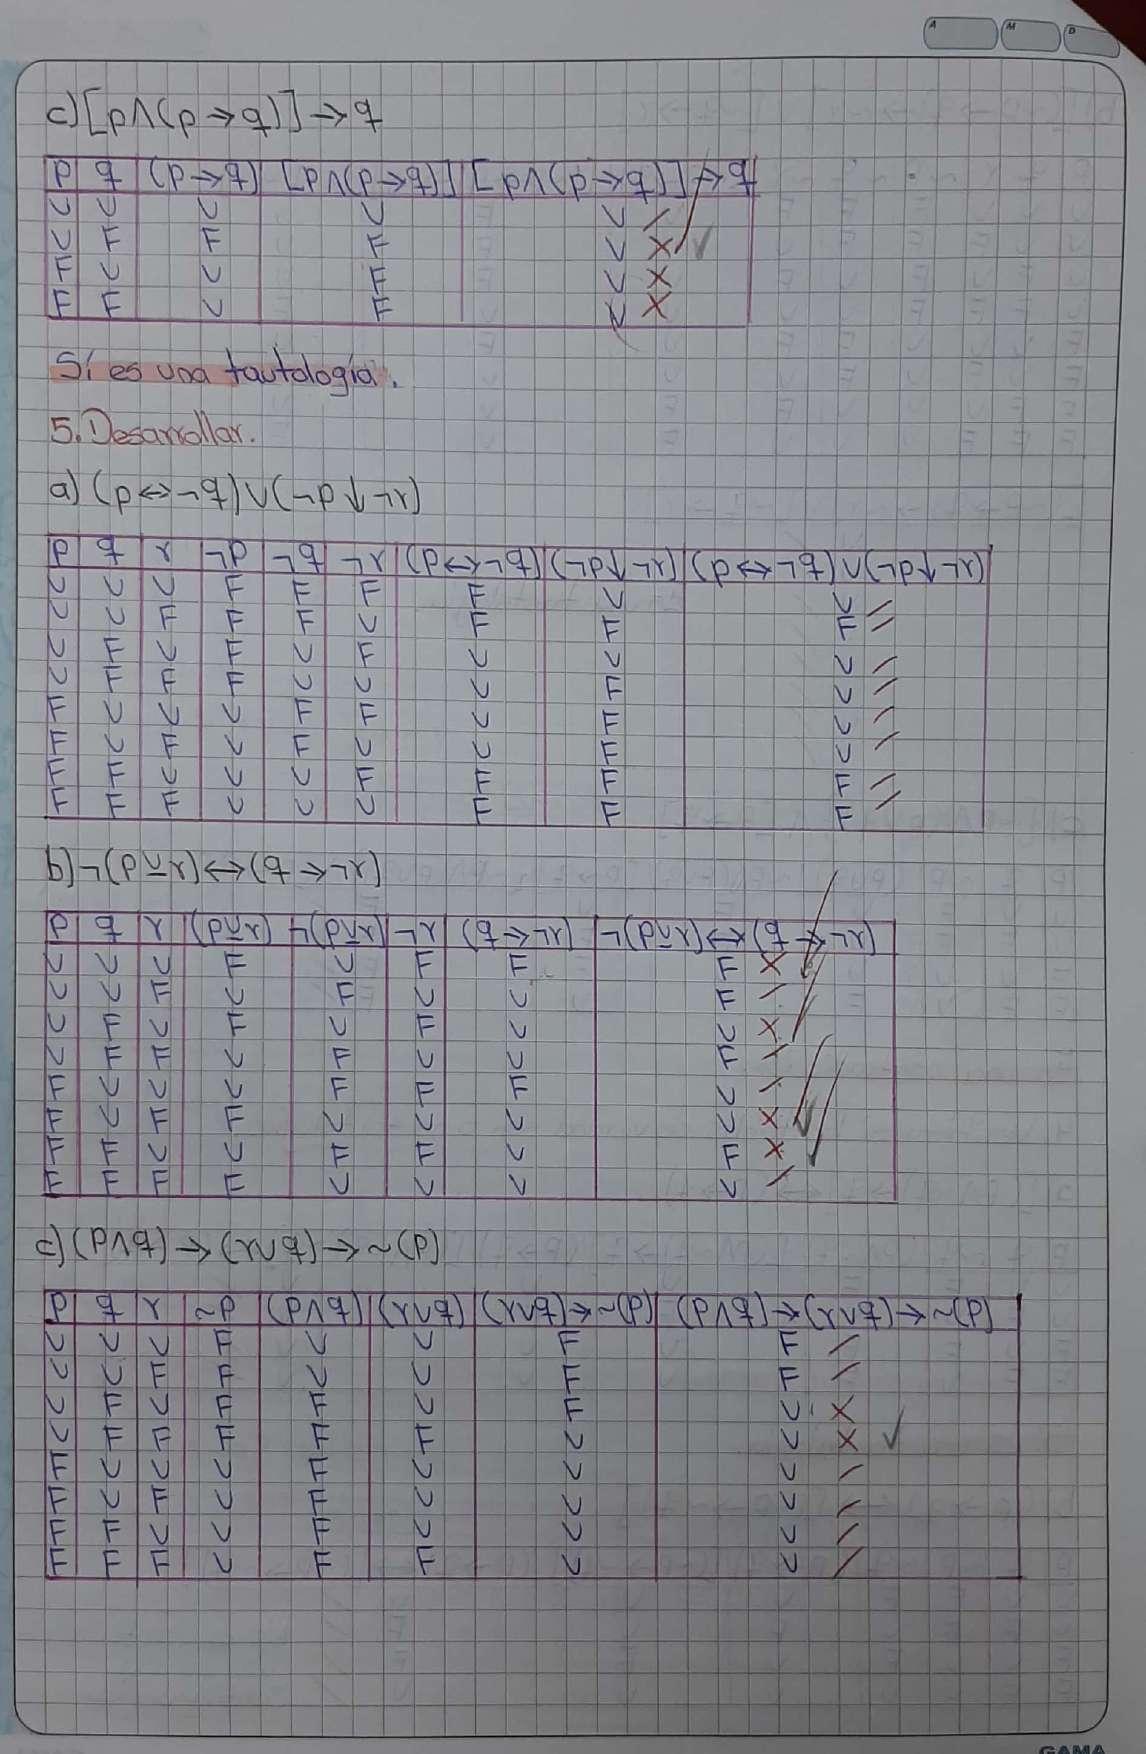 A M D
c) [p∧(p→q)]→q
p q (p→q) [p∧(p→q)] [p∧(p→q)]→q
V V V V V
V F F F V ×
F V V F V ×
F F V F V ×
Sí es una tautología.
5. Desarrollar.
a) (p↔¬q)∨(¬p↓¬r)
p q r ¬p ¬q ¬r (p↔¬q) (¬p↓¬r) (p↔¬q)∨(¬p↓¬r)
V V V F F F F V V
V V F F F V F F F
V F V F V F V V V
V F F F V V V F V
F V V V F F V F V
F V F V F V V F V
F F V V V F F F F
F F F V V V F F F
b) ¬(p⊻r)↔(q→¬r)
p q r (p⊻r) ¬(p⊻r) ¬r (q→¬r) ¬(p⊻r)↔(q→¬r)
V V V F V F F F ×
V V F V F V V F
V F V F V F V V ×
V F F V F V V F
F V V V F F F V
F V F F V V V V ×
F F V V F F V F ×
F F F F V V V V
c) (p∧q)→(r∨q)→~(p)
p q r ~p (p∧q) (r∨q) (r∨q)→~(p) (p∧q)→(r∨q)→~(p)
V V V F V V F F
V V F F V V F F
V F V F F V F V ×
V F F F F F V V ×
F V V V F V V V
F V F V F V V V
F F V V F V V V
F F F V F F V V
GAMA